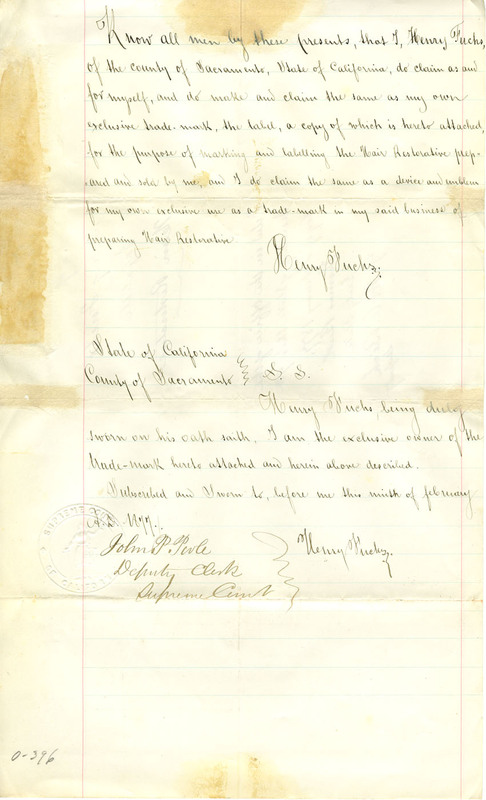 Know all men by these presents, that I, Henry Fuchs,
of the county of Sacramento, State of California, do claim as and
for myself, and do make and claim the same as my own
exclusive trade-mark, the label, a copy of which is hereto attached,
for the purpose of marking and labelling the Hair Restorative prep-
ared and sold by me, and I do claim the same as a device and emblem
for my own exclusive use as a trade-mark in my said business of
preparing Hair Restorative
Henry Fuchs.
State of California
County of Sacramento S. S.
Henry Fuchs, being duly
sworn on his oath saith, I am the exclusive owner of the
trade-mark hereto attached and herein above described.
Subscribed and Sworn to, before me this ninth of february
A.D. 1877.
Henry Fuchs.
John P.
Deputy Clerk
Supreme Court
SUPREME COURT
0-396